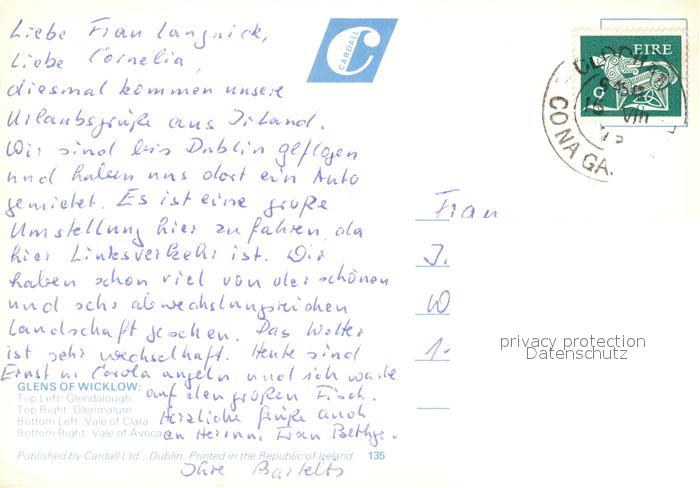 Liebe Frau Langnick,
Liebe Cornelia,
diesmal kommen unsere
Urlaubsgrüße aus Irland.
Wir sind bis Dublin geflogen
und haben uns dort ein Auto
gemietet. Es ist eine große
Umstellung hier zu fahren, da
hier Linksverkehr ist. Wir
haben schon viel von der schönen
und sehr abwechslungsreichen
Landschaft gesehen. Das Wetter
ist sehr wechselhaft. Heute sind
Ernst u. Carola angeln und ich warte
auf den großen Fisch.
Herzliche Grüße auch
an Herrn u. Frau
Ihre Bartelts
CARDALL
C
EIRE
9
CONA GA.
VIII
Frau
J.
W
1.
privacy protection
Datenschutz
GLENS OF WICKLOW:
Top Left: Glendalough
Top Right: Glenmalure
Bottom Left: Vale of Clara
Bottom Right: Vale of Avoca
Published by Cardall Ltd., Dublin. Printed in the Republic of Ireland. 135